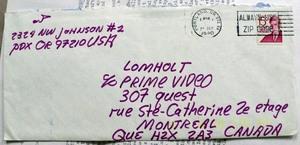 2329 NW JOHNSON #2
PDX OR 97210 USA
ALWAYS USE
ZIP CODE
LOMHOLT
c/o PRIME VIDEO
307 ouest
rue Ste-Catherine 2e etage
MONTREAL
QUE H2X 2A3 CANADA